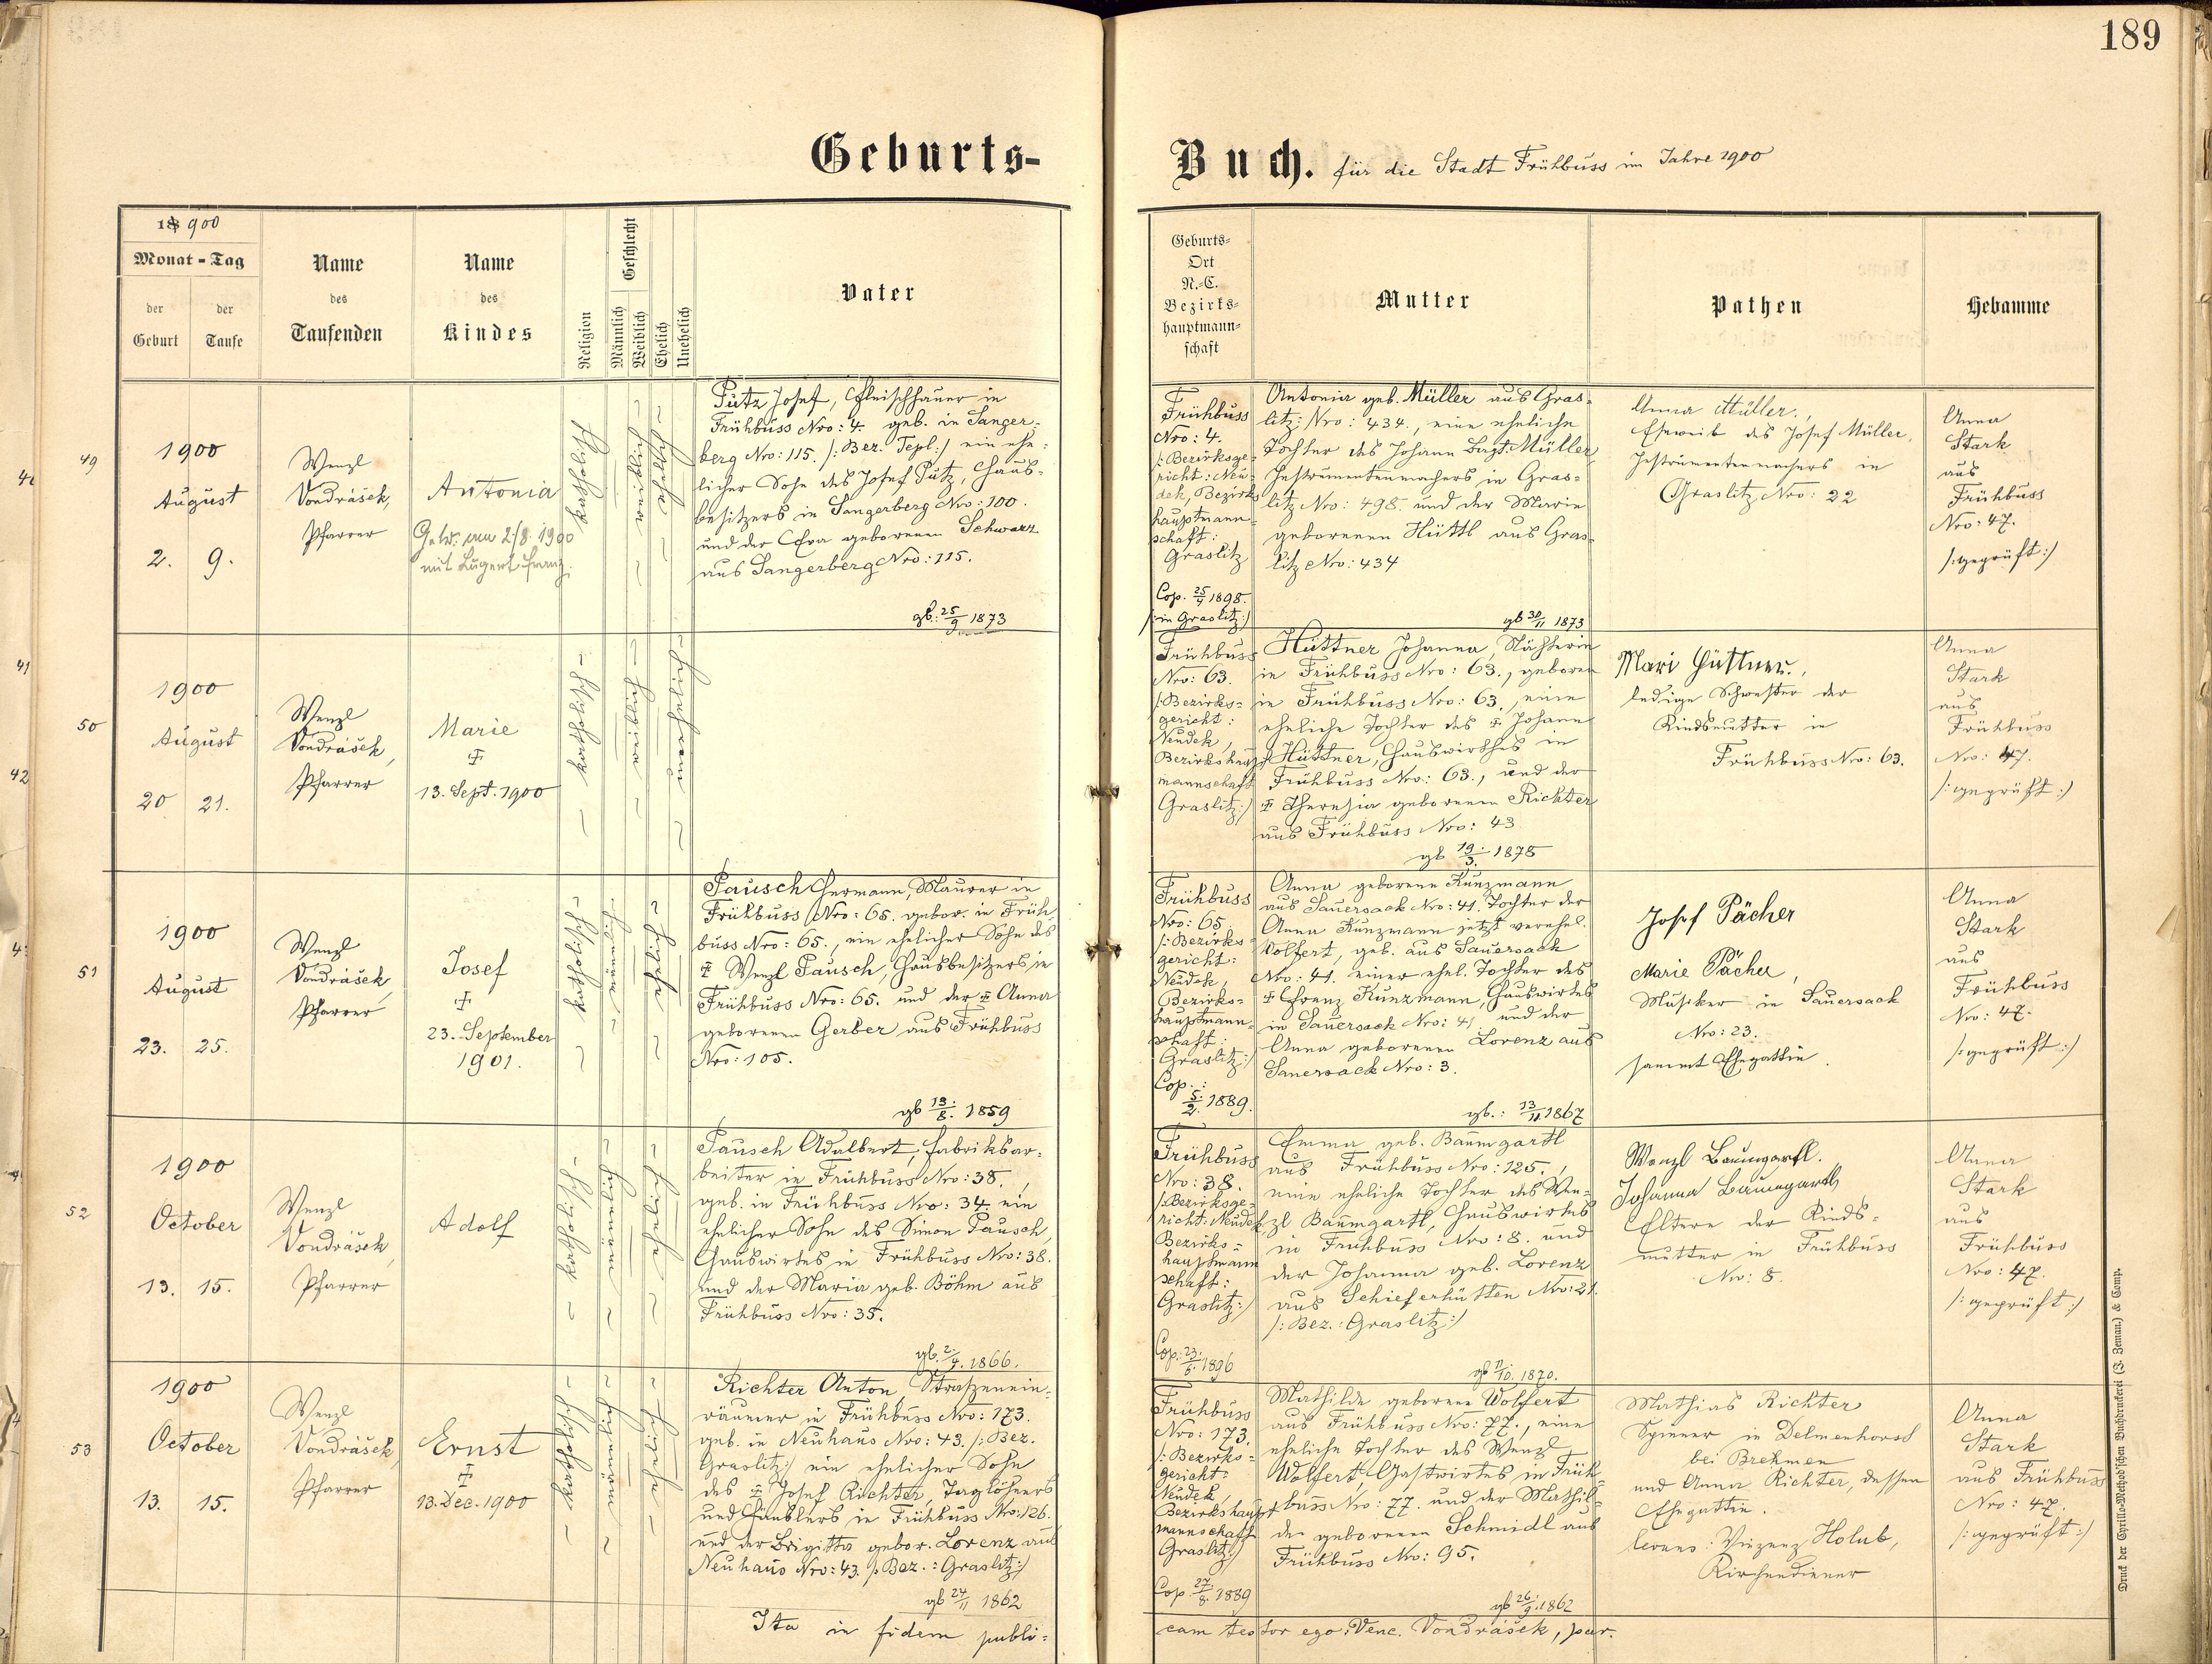 189
Geburts-
Buch. für die Stadt Frühbuss im Jahre 1900
18 900
Monat - Tag
der Geburt
der Taufe
Name
des
Taufenden
Name
des
Kindes
Religion
Geschlecht
Männlich
Weiblich
Ehelich
Unehelich
Vater
Geburts-
Ort
N.-C.
Bezirks-
hauptmann-
schaft
Mutter
Pathen
Hebamme
49
1900
August
2. 9.
Wenzl
Vondrášek,
Pfarrer
Antonia
mit Lugert Franz
katholisch
weiblich
ehelich
Pütz Josef, Fleischhauer in
Frühbuss Nro: 4. geb. in Sanger-
berg Nro: 115. /: Bez. Tepl :/ ein ehe-
licher Sohn des Josef Pütz, Haus-
besitzers in Sangerberg Nro: 100.
und der Eva geborenen Schwarz
aus Sangerberg Nro: 115.
gb: 25/9 1873
Frühbuss
Nro: 4.
/: Bezirksge-
richt: Neu-
dek, Bezirks
hauptmann-
schaft:
Graslitz
Cop. 25/4 1898.
/: in Graslitz :/
Antonia geb. Müller aus Gras-
litz: Nro: 434., eine eheliche
Tochter des Johann Bapt. Müller,
Instrumentenmachers in Gras-
litz Nro: 498. und der Marie
geborenen Hüttl aus Gras-
litz Nro: 434
gb 30/11 1873
Anna Müller,
Eheweib des Josef Müller,
Instrumentenmachers in
Graslitz Nro: 22
Anna
Stark
aus
Frühbuss
Nro: 47.
/: geprüft :/
50
1900
August
20 21.
Wenzl
Vondrášek,
Pfarrer
Marie
13. Sept. 1900
katholisch
weiblich
unehelich
Frühbuss
Nro: 63.
/: Bezirks-
gericht:
Neudek,
Bezirkshaupt
mannschaft
Graslitz :/
Hüttner Johanna, Nähterin
in Frühbuss Nro: 63., geboren
in Frühbuss Nro: 63., eine
eheliche Tochter des ‡ Johann
Hüttner, Hauswirthes in
Frühbuss Nro: 63., und der
‡ Theresia geborenen Richter
aus Frühbuss Nro: 43
gb 19./3. 1875
Mari Hüttner,
ledige Schwester der
Kindsmutter in
Frühbuss Nro: 63.
Anna
Stark
aus
Frühbuss
Nro: 47.
/: geprüft :/
51
1900
August
23. 25.
Wenzl
Vondrášek,
Pfarrer
Josef
23. September
1901.
katholisch
männlich
ehelich
Pausch Hermann, Maurer in
Frühbuss Nro: 65. gebor. in Früh-
buss Nro: 65., ein ehelicher Sohn des
‡ Wenzl Pausch, Hausbesitzers in
Frühbuss Nro: 65. und der ‡ Anna
geborenen Gerber aus Frühbuss
Nro: 105.
gb 13./8. 1859
Frühbuss
Nro: 65.
/: Bezirks-
gericht:
Neudek,
Bezirks-
hauptmann-
schaft:
Graslitz :/
Cop.:
5./2. 1889.
Anna geborene Kunzmann
aus Sauersack Nro: 41. Tochter der
Anna Kunzmann jetzt verehel.
Wolfert, geb. aus Sauersack
Nro: 41. einer ehel. Tochter des
‡ Franz Kunzmann, Hauswirtes
in Sauersack Nro: 41 und der
Anna geborenen Lorenz aus
Sauersack Nro: 3.
gb.: 13/11 1867
Josef Pächer
Marie Pächer,
Musiker in Sauersack
Nro: 23.
sammt Ehegattin.
Anna
Stark
aus
Frühbuss
Nro: 47.
/: geprüft :/
52
1900
October
13. 15.
Wenzl
Vondrášek,
Pfarrer
Adolf
katholisch
männlich
ehelich
Pausch Adalbert, Fabriksar-
beiter in Frühbuss Nro: 38.,
geb. in Frühbuss Nro: 34 ein
ehelicher Sohn des Simon Pausch,
Hauswirtes in Frühbuss Nro: 38.
und der Maria geb. Böhm aus
Frühbuss Nro: 35.
gb. 2./4. 1866.
Frühbuss
Nro: 38.
/: Bezirksge-
richt: Neudek
Bezirks-
hauptmann
schaft:
Graslitz :/
Cop: 23./5. 1896
Emma geb. Baumgartl
aus Frühbuss Nro: 125.,
eine eheliche Tochter des Wen-
zl Baumgartl, Hauswirtes
in Frühbuss Nro: 8. und
der Johanna geb. Lorenz
aus Schieferhütten Nro: 21.
/: Bez.: Graslitz :/
gb 11/10. 1870.
Wenzl Baumgartl.
Johanna Baumgartl,
Eltern der Kinds-
mutter in Frühbuss
Nro: 8.
Anna
Stark
aus
Frühbuss
Nro: 47.
/: geprüft :/
53
1900
October
13. 15.
Wenzl
Vondrášek,
Pfarrer
Ernst
13. Dec. 1900
katholisch
männlich
ehelich
Richter Anton, Straßenein-
räumer in Frühbuss Nro: 173.
geb. in Neuhaus Nro: 43. /: Bez.
Graslitz :/ ein ehelicher Sohn
des ‡ Josef Richter, Taglöhners
und Häuslers in Frühbuss Nro: 126.
und der Brigitta gebor. Lorenz aus
Neuhaus Nro: 43. /: Bez.: Graslitz :/
gb 24/11 1862
Frühbuss
Nro: 173.
/: Bezirks-
gericht:
Neudek,
Bezirkshaupt
mannschaft
Graslitz :/
Cop. 27./8. 1889
Mathilde geborene Wolfert
aus Frühbuss Nro: 77., eine
eheliche Tochter des Wenzl
Wolfert, Gastwirtes in Früh-
buss Nro: 77. und der Mathil-
de geborenen Schmidl aus
Frühbuss Nro: 95.
gb 26./9. 1862
Mathias Richter
Spinner in Delmenhorst
bei Brehmen
und Anna Richter, dessen
Ehegattin.
levans: Vinzenz Holub,
Kirchendiener
Anna
Stark
aus Frühbuss
Nro: 47.
/: geprüft :/
Ita in fidem publi-
cam testor ego: Venc. Vondrášek, par.
Druck der Cyrillo-Method'schen Buchdruckerei (J. Zeman) & Comp.